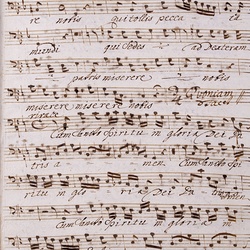 re nobis qui tollis pecca ta
mundi qui sedes ad dexteram
patris miserere nobis
miserere miserere nobis
vivace Cum Sancto Spiritu in gloria Dei Pa
tris a men, Cum Sancto Spi
ritu in glo ri a Dei Pa
Cum Sancto Spiritu in gloria in